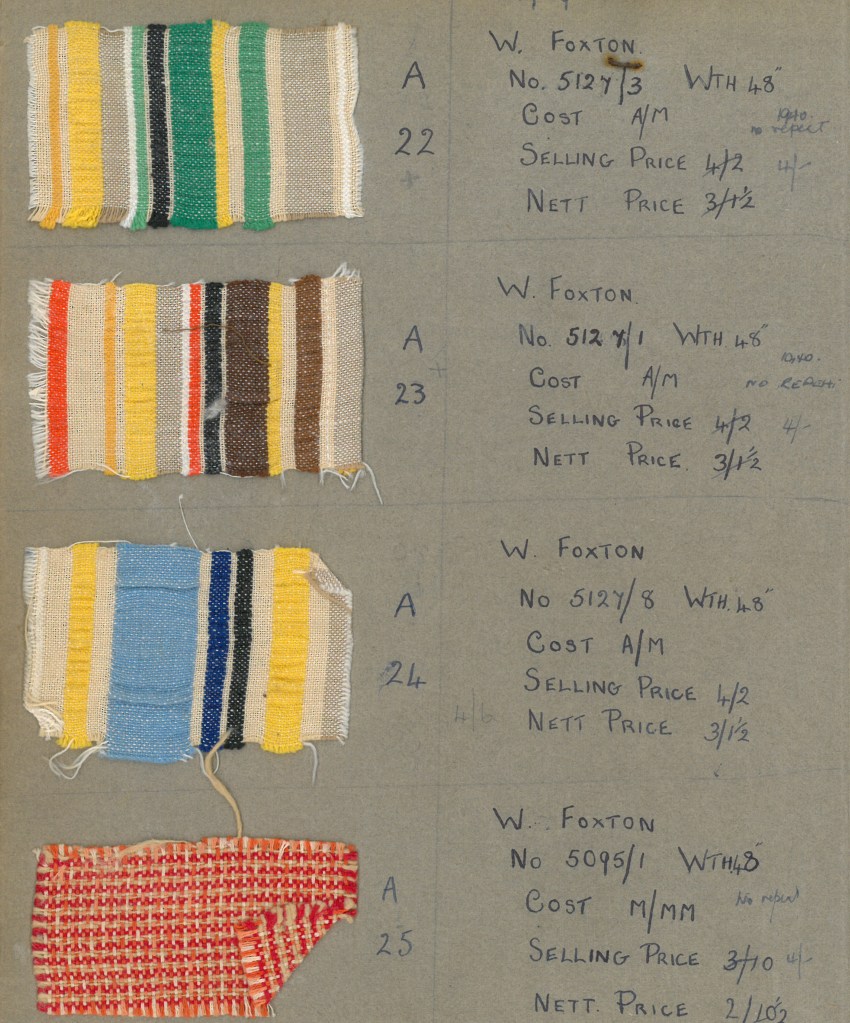 A
22
W. FOXTON.
No. 5127/3 WTH 48"
COST A/M
1940.
no repeat
SELLING PRICE 4/2 4/-
NETT PRICE 3/1½
A
23
W. FOXTON.
No. 5127/1 WTH 48"
1940.
COST A/M
NO REPEAT.
SELLING PRICE 4/2 4/-
NETT PRICE. 3/1½
A
24
W. FOXTON
No 5127/8 WTH. 48"
COST A/M
SELLING PRICE 4/2
4/6
NETT PRICE 3/1½
A
25
W. FOXTON
No 5095/1 WTH.48"
COST M/MM
No repeat
SELLING PRICE 3/10 4/-
NETT. PRICE 2/10½